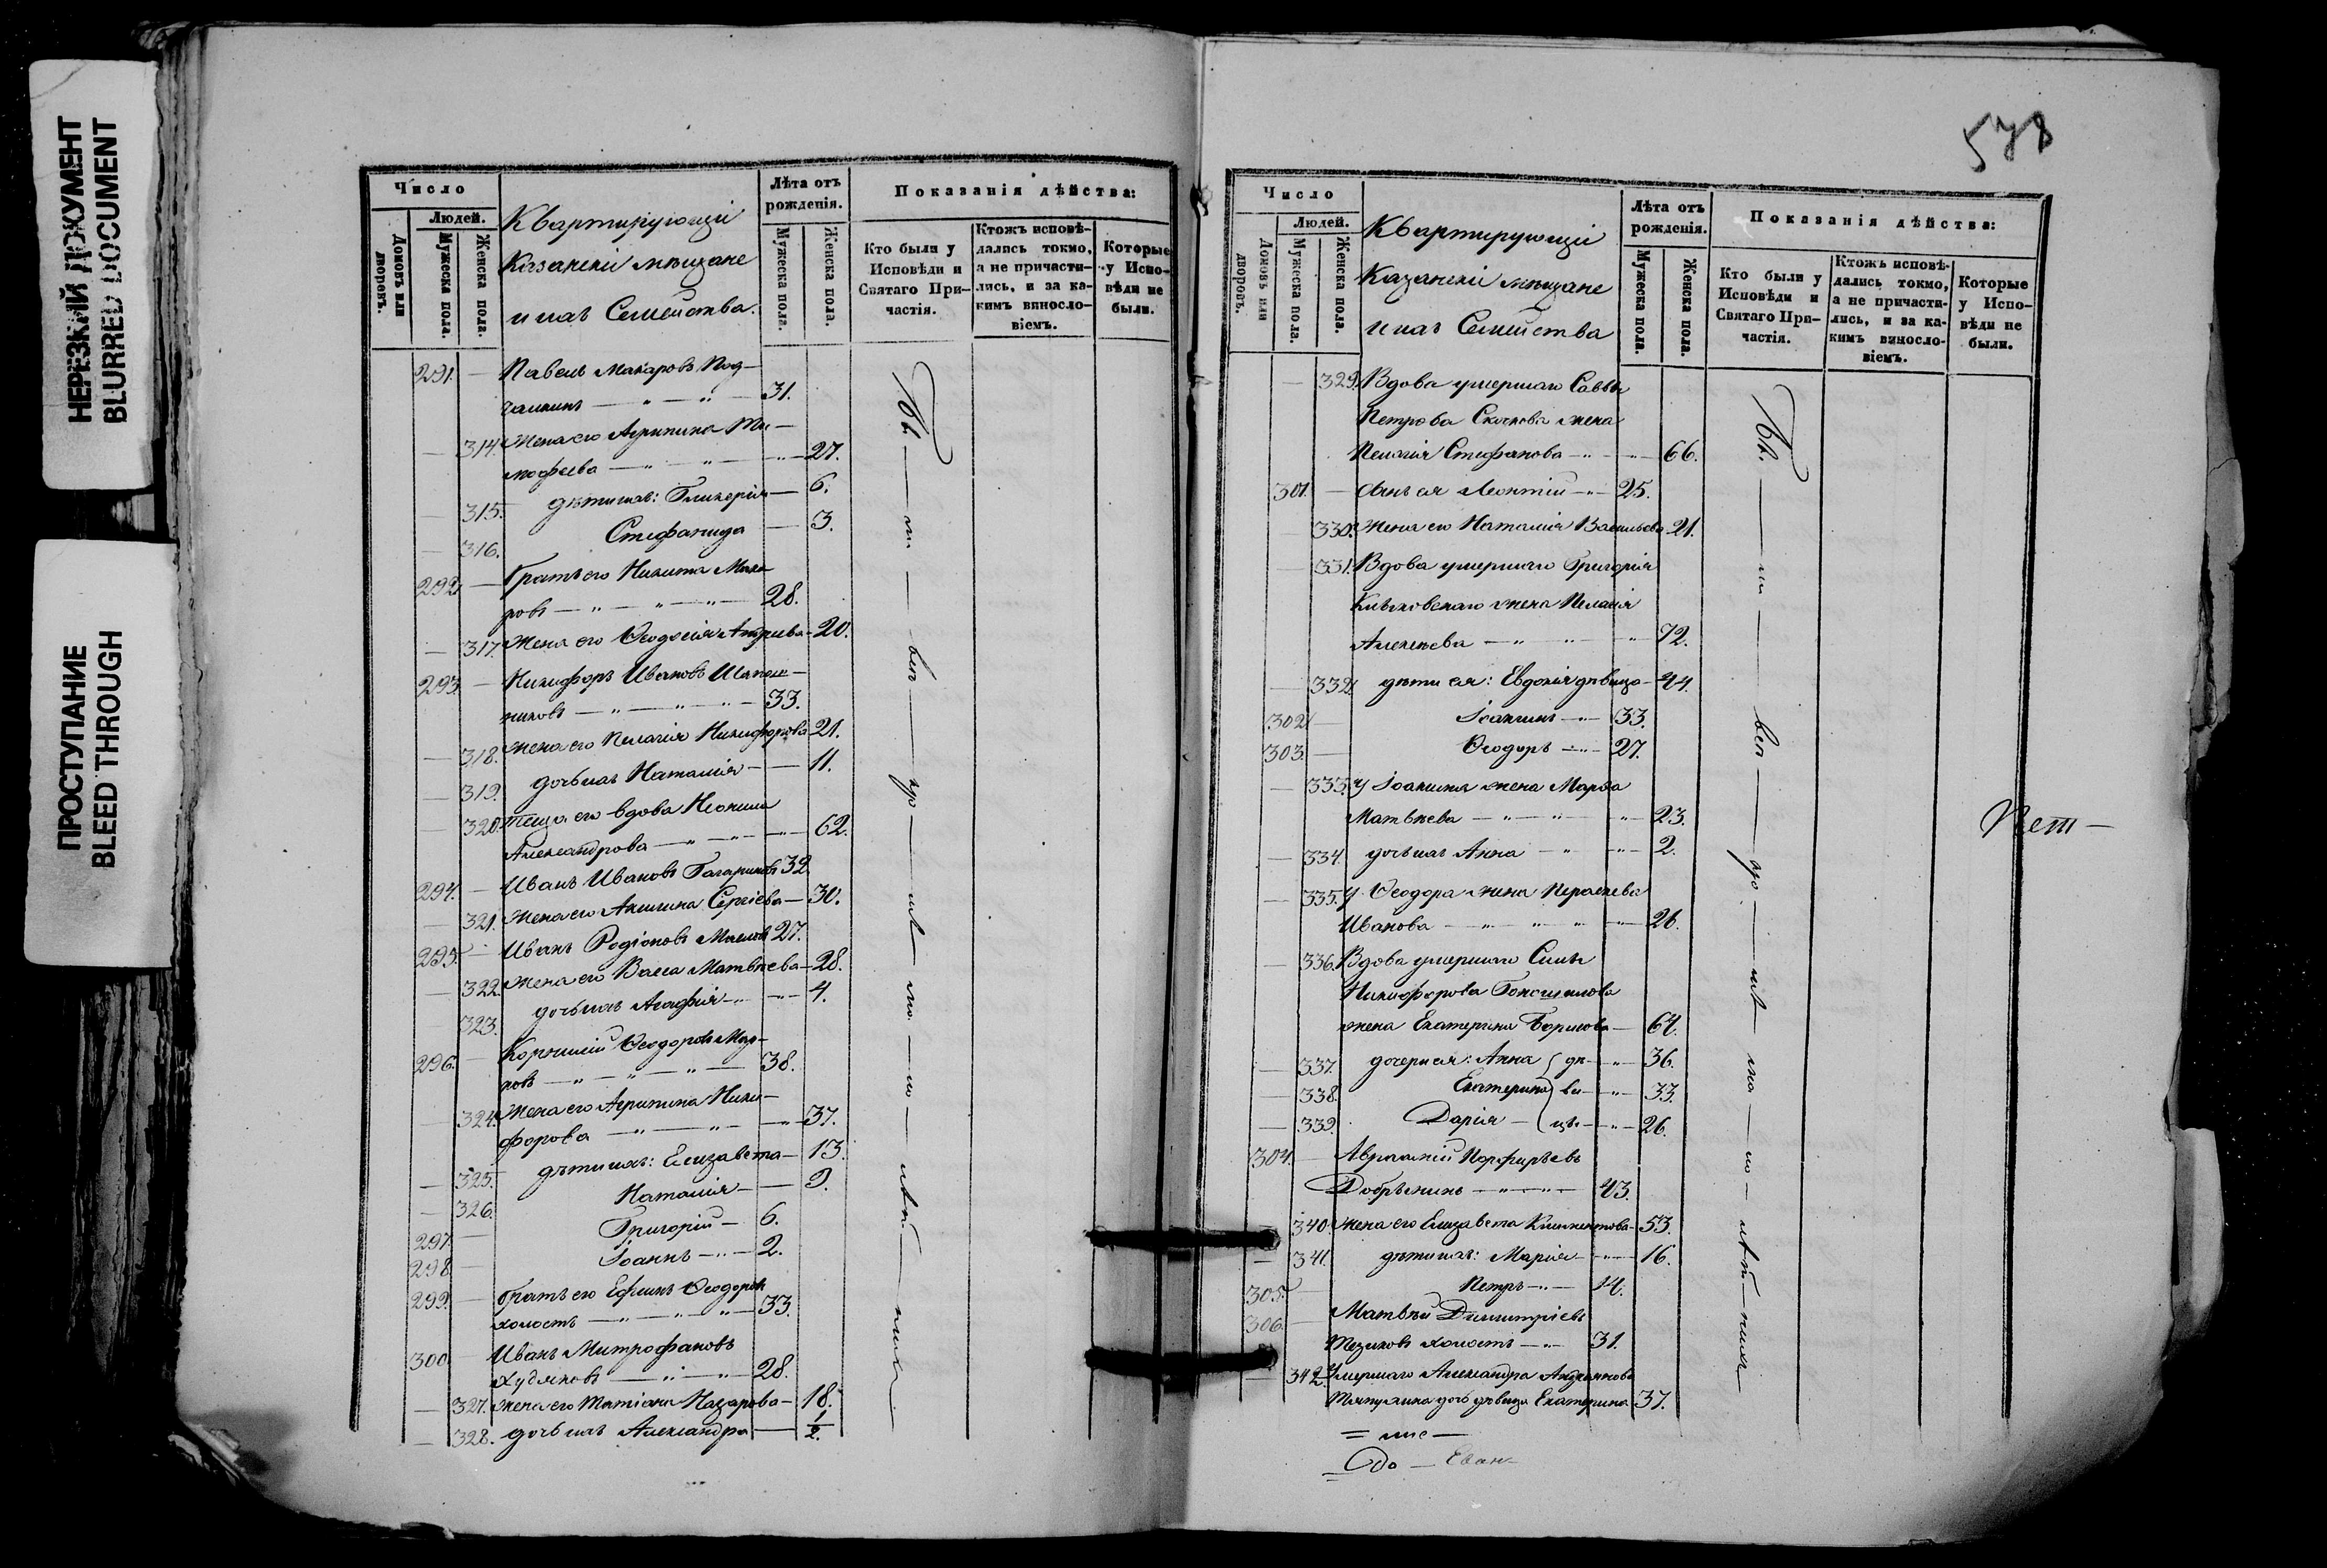 НЕРЕЗКИЙ ДОКУМЕНТ
BLURRED DOCUMENT
ПРОСТУПАНИЕ
BLEED THROUGH
Число
Людей.
Домовъ или дворовъ.
Мужеска пола.
Женска пола.
Квартирующіи
Казански мѣщане
и ихъ Семейства.
Лѣта отъ рожденія.
Мужеска пола.
Женска пола.
Показанія дѣйства:
Кто были у Исповѣди и Святаго Причастія.
Ктожъ исповѣдались токмо, а не причастились, и за какимъ винословіемъ.
Которые у Исповѣди не были.
291. — Павелъ Макаровъ Под-
31.
— 314. Жена его Агрипина Ти-
мофеева — 27.
— 315. дѣти ихъ: Гликерія — 6.
— 316. Стефанида — 3.
292. — Братъ его Никита Мака
ровъ — 28.
— 317. Жена его Ѳеодосія Андреева — 20.
293. — Никифоръ Ивановъ
никовъ — 33.
— 318. Жена его Пелагія Никифорова 21.
— 319. дочь ихъ Наталия — 11.
— 320. теща его вдова Неонила
Александрова — 62.
294. — Иванъ Ивановъ Гагаринъ 32.
— 321. Жена его Акилина Сергіева — 30.
295. — Иванъ Родіоновъ 27.
— 322. Жена его Васса Матвѣева — 28.
— 323. дочь ихъ Агафія — 4.
296. — Корнилій Ѳеодоровъ
ковъ — 38.
— 324. Жена его Агрипина Ники-
форова — 37.
— 325. дѣти ихъ: Елизавета — 13.
— 326. Наталия — 9.
297. — Григорій — 6.
298. — Іоаннъ — 2.
299. — братъ его Ефимъ Ѳеодоровъ
холостъ — 33.
300. — Иванъ Митрофановъ
Худяковъ — 28.
— 327. жена его Татіана Назарова — 18.
— 328. дочь ихъ Александра — 1/2.
578
Число
Людей.
Домовъ или дворовъ.
Мужеска пола.
Женска пола.
Квартирующіи
Казанскіи мѣщане
и ихъ Семейства
Лѣта отъ рожденія.
Мужеска пола.
Женска пола.
Показанія дѣйства:
Кто были у Исповѣди и Святаго Причастія.
Ктожъ исповѣдались токмо, а не причастились, и за какимъ винословіемъ.
Которые у Исповѣди не были.
— 329. Вдова умершаго Саввы
Петрова жена
Пелагія Стефанова — 66.
301. — сынъ ея Леонтій — 25.
— 330. жена его Наталия Васильева 21.
— 331. Вдова умершаго Григорія
жена Пелагія
Алексѣева — 72.
— 332. дѣти ея: Евдокія дѣвица — 44.
302. — Іоакимъ — 33.
303. — Ѳеодоръ — 27.
— 333. У Іоакима жена Марѳа
Матвѣева — 23.
— 334. дочь ихъ Анна — 2.
— 335. У Ѳеодора жена Параскева
Иванова — 26.
— 336. Вдова умершаго Силы
Никифорова
жена Екатерина Борисова — 64.
— 337. дочери ея: Анна дѣ- 36.
— 338. Екатерина ви- 33.
— 339. Дарія — цы — 26.
304. — Авраамій Порфирьевъ
Добрынинъ — 43.
— 340. жена его Елизавета Климентова — 53.
— 341. дѣти ихъ: Марія — 16.
305. — Петръ — 14.
306. — Матвѣй Димитріевъ
Тезиковъ холостъ — 31.
— 342. Умершаго Александра
дочь дѣвица Екатерина 37.